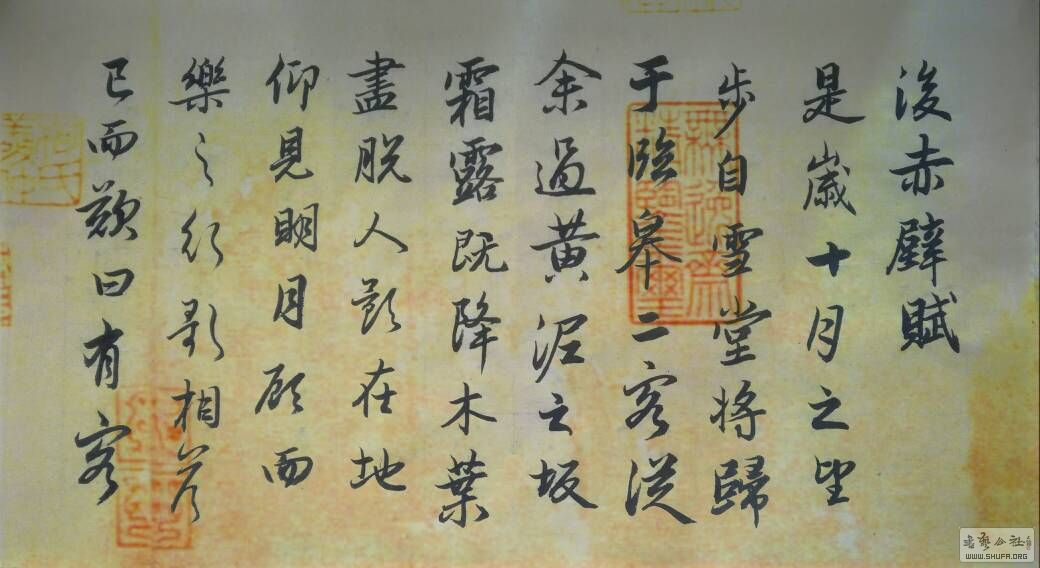 後赤壁賦
是歲十月之望
步自雪堂將歸
于臨皋二客從
余過黃泥之坂
霜露既降木葉
盡脱人影在地
仰見明月顧而
樂之行歌相答
已而歎曰有客
書藝公社
WWW.SHUFA.ORG